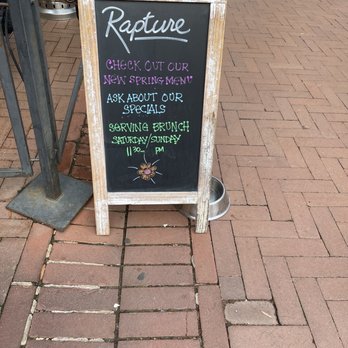 Rapture
CHECK OUT OUR
NEW SPRING MENU
ASK ABOUT OUR
SPECIALS
SERVING BRUNCH
SATURDAY/SUNDAY
11:30 PM